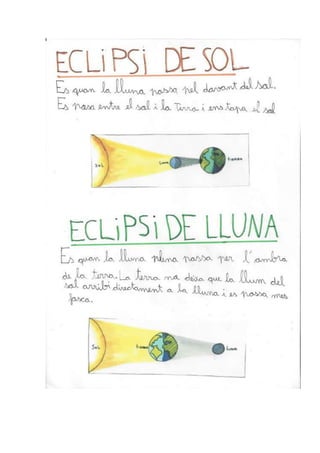 ECLiPSi DE SOL
Es quan la lluna passa pel davant del sol.
Es posa entre el sol i la Terra i ens tapa el sol
SoL
Lluna
ECLiPSi DE LLUNA
Es quan la lluna plena passa per l'ombra
de la terra. La terra no deixa que la llum del
sol arribi directament a la lluna i es possa mes
fosca.
SoL
Lluna